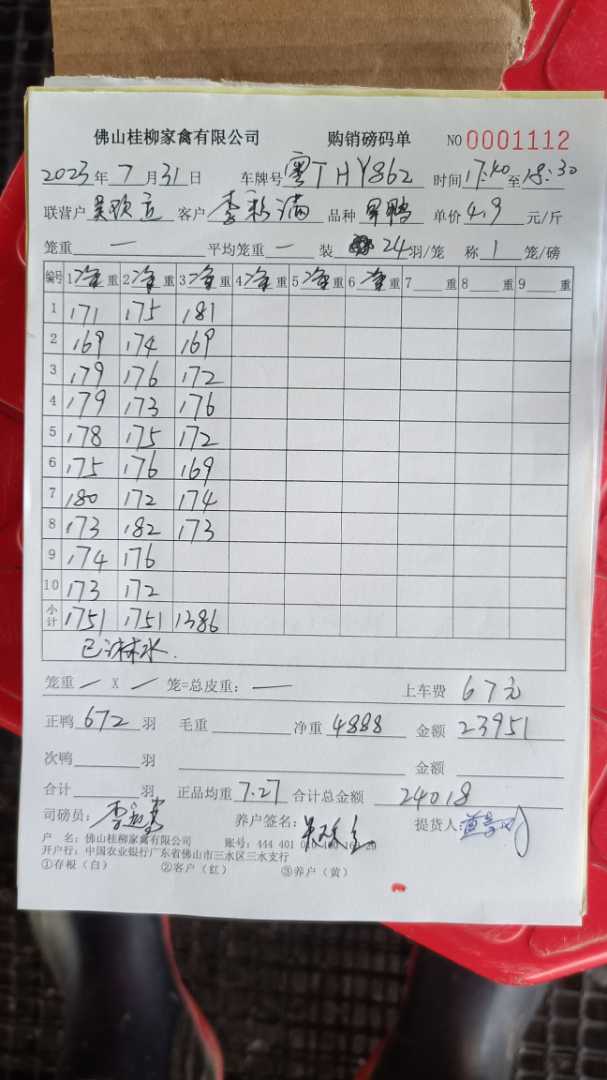 佛山桂柳家禽有限公司 购销磅码单 NO 0001112
2023年7月31日 车牌号 粤THY862 时间17:40至18:30
联营户 客户 李彩满 品种 旱鸭 单价4.9元/斤
笼重 — 平均笼重 — 装 24羽/笼 称1笼/磅
编号 1净重 2净重 3净重 4净重 5净重 6净重 7 重 8 重 9 重
1 171 175 181
2 169 174 169
3 179 176 172
4 179 173 176
5 178 175 172
6 175 176 169
7 180 172 174
8 173 182 173
9 174 176
10 173 172
小计 1751 1751 1386
已淋水.
笼重 — X — 笼=总皮重: — 上车费 67元
正鸭672羽 毛重 净重4888 金额23951
次鸭 羽 金额
合计 羽 正品均重7.27 合计总金额 24018
司磅员: 养户签名: 提货人:
户 名:佛山桂柳家禽有限公司 账号:444 401
开户行:中国农业银行广东省佛山市三水区三水支行
①存根(白) ②客户(红) ③养户(黄)